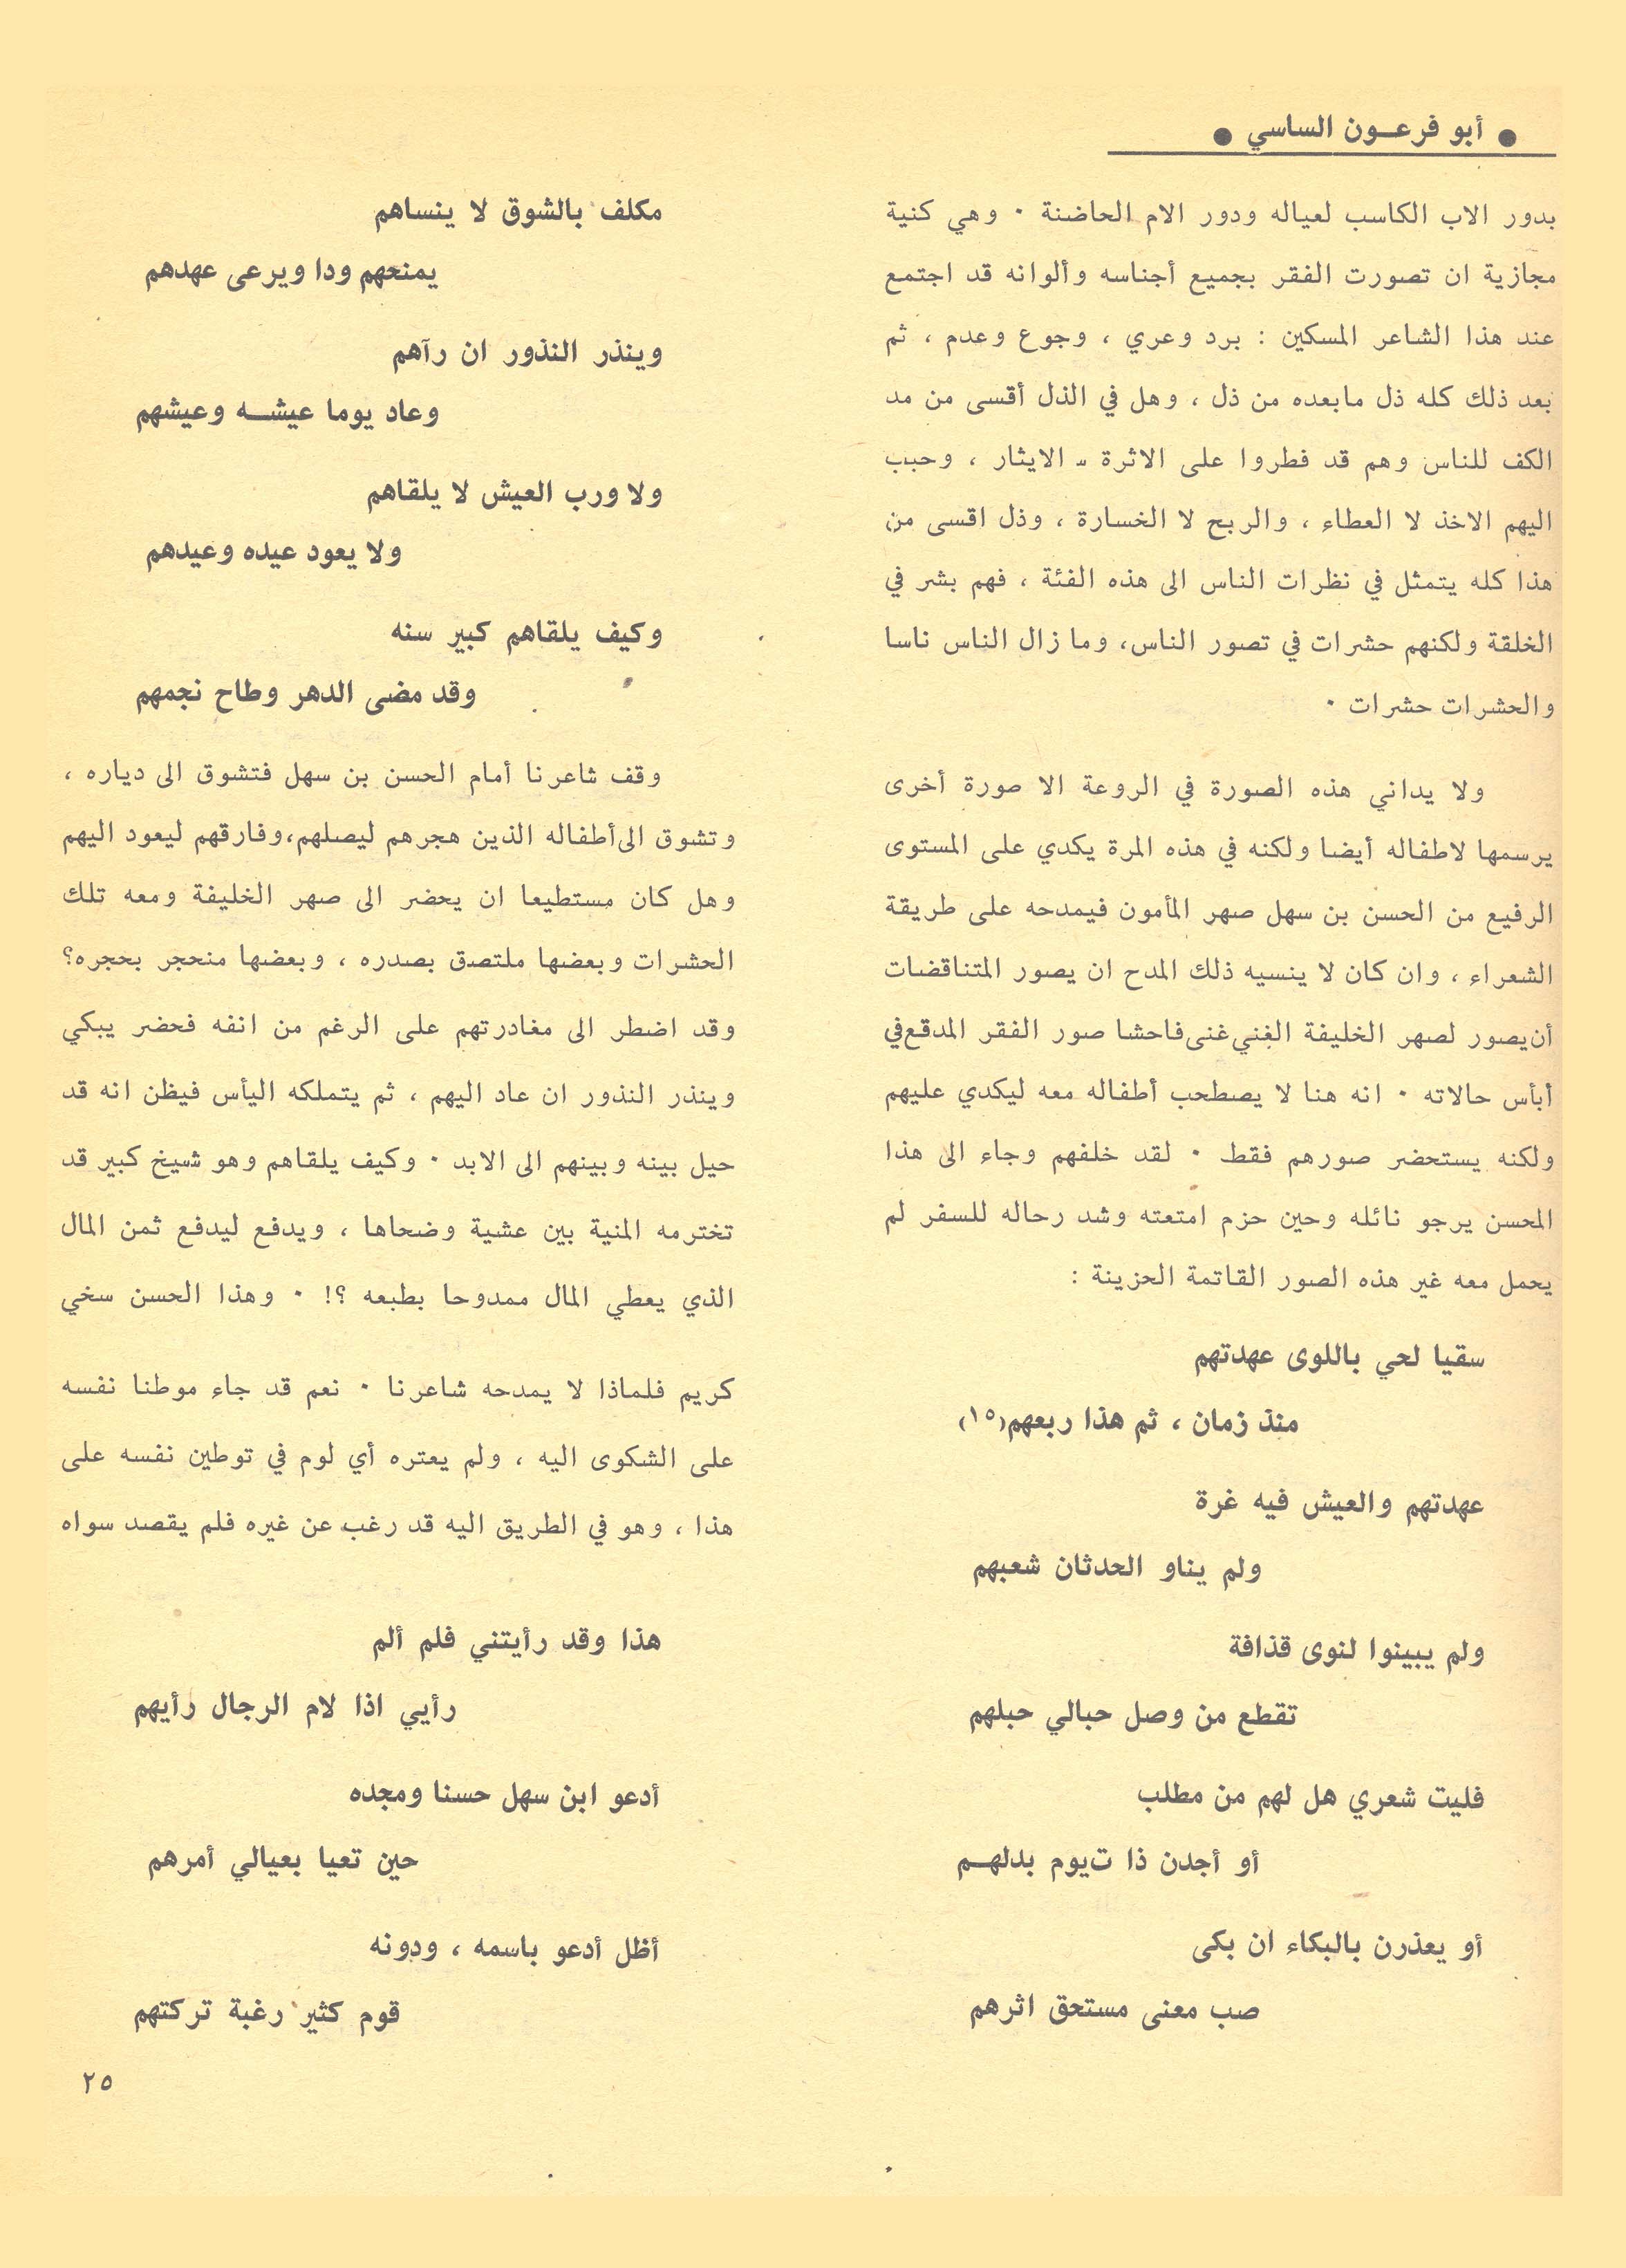 ● أبو فرعـون الساسي ●
بدور الاب الكاسب لعياله ودور الام الحاضنة ٠ وهي كنية
مجازية ان تصورت الفقر بجميع أجناسه وألوانه قد اجتمع
عند هذا الشاعر المسكين : برد وعري ، وجوع وعدم ، ثم
بعد ذلك كله ذل مابعده من ذل ، وهل في الذل أقسى من مد
الكف للناس وهم قد فطروا على الاثرة ـ الايثار ، وحبب
اليهم الاخذ لا العطاء ، والربح لا الخسارة ، وذل اقسى من
هذا كله يتمثل في نظرات الناس الى هذه الفئة ، فهم بشر في
الخلقة ولكنهم حشرات في تصور الناس، وما زال الناس ناسا
والحشرات حشرات ٠
ولا يداني هذه الصورة في الروعة الا صورة أخرى
يرسمها لاطفاله أيضا ولكنه في هذه المرة يكدي على المستوى
الرفيع من الحسن بن سهل صهر المأمون فيمدحه على طريقة
الشعراء ، وان كان لا ينسيه ذلك المدح ان يصور المتناقضات
أن يصور لصهر الخليفة الغني غنى فاحشا صور الفقر المدقع في
أبأس حالاته ٠ انه هنا لا يصطحب أطفاله معه ليكدي عليهم
ولكنه يستحضر صورهم فقط ٠ لقد خلفهم وجاء الى هذا
المحسن يرجو نائله وحين حزم امتعته وشد رحاله للسفر لم
يحمل معه غير هذه الصور القاتمة الحزينة :
سقيا لحي باللوى عهدتهم
منذ زمان ، ثم هذا ربعهم(١٥)
عهدتهم والعيش فيه غرة
ولم يناو الحدثان شعبهم
ولم يبينوا لنوى قذافة
تقطع من وصل حبالي حبلهم
فليت شعري هل لهم من مطلب
أو أجدن ذا ت يوم بدلهـم
أو يعذرن بالبكاء ان بكى
صب معنى مستحق اثرهم
مكلف بالشوق لا ينساهم
يمنحهم ودا ويرعى عهدهم
وينذر النذور ان رآهم
وعاد يوما عيشـه وعيشهم
ولا ورب العيش لا يلقاهم
ولا يعود عيده وعيدهم
وكيف يلقاهم كبير سنه
وقد مضى الدهر وطاح نجمهم
وقف شاعرنا أمام الحسن بن سهل فتشوق الى دياره ،
وتشوق الى أطفاله الذين هجرهم ليصلهم، وفارقهم ليعود اليهم
وهل كان مستطيعا ان يحضر الى صهر الخليفة ومعه تلك
الحشرات وبعضها ملتصق بصدره ، وبعضها منحجر بحجره؟
وقد اضطر الى مغادرتهم على الرغم من انفه فحضر يبكي
وينذر النذور ان عاد اليهم ، ثم يتملكه اليأس فيظن انه قد
حيل بينه وبينهم الى الابد ٠ وكيف يلقاهم وهو شيخ كبير قد
تخترمه المنية بين عشية وضحاها ، ويدفع ليدفع ثمن المال
الذي يعطي المال ممدوحا بطبعه ؟! ٠ وهذا الحسن سخي
كريم فلماذا لا يمدحه شاعرنا ٠ نعم قد جاء موطنا نفسه
على الشكوى اليه ، ولم يعتره أي لوم في توطين نفسه على
هذا ، وهو في الطريق اليه قد رغب عن غيره فلم يقصد سواه
هذا وقد رأيتني فلم ألم
رأيي اذا لام الرجال رأيهم
أدعو ابن سهل حسنا ومجده
حين تعيا بعيالي أمرهم
أظل أدعو باسمه ، ودونه
قوم كثير رغبة تركتهم
٢٥